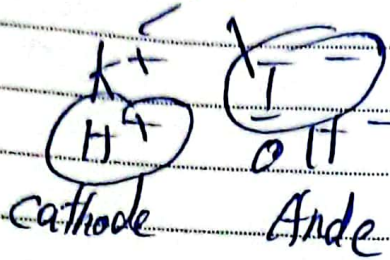 K+ I-
H+ OH-
Cathode Ande